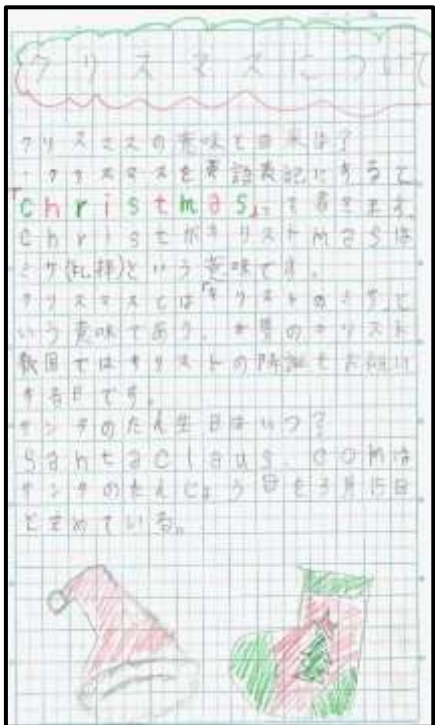 クリスマスについて
クリスマスの意味と由来は?
・クリスマスを英語表記にすると
「christmas」って書きます。
christがキリストmasは
ミサ(礼拝)という意味です。
クリスマスとは「キリストのミサ」と
いう意味である。本番のキリスト
教国ではキリストの降誕をお祝い
する日です。
サンタのたん生日はいつ?
santaclaus.comは
サンタのたんじょう日を3月15日
ときめている。